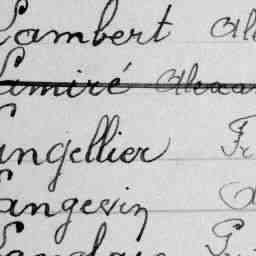 Lambert Al
Lamiré Alexa
angellier Fr
angevin